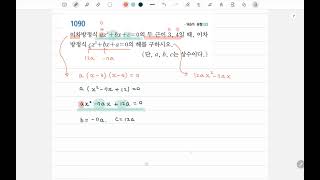 1090
이차방정식 ax²+bx+c=0의 두 근이 3, 4일 때, 이차
방정식 cx²+bx+a=0의 해를 구하시오.
(단, a, b, c는 상수이다.)
12a -7a
a (x-3)(x-4) = 0
12ax²-7ax
a (x²-7x+12) = 0
ax²-7ax+12a = 0
b = -7a c = 12a